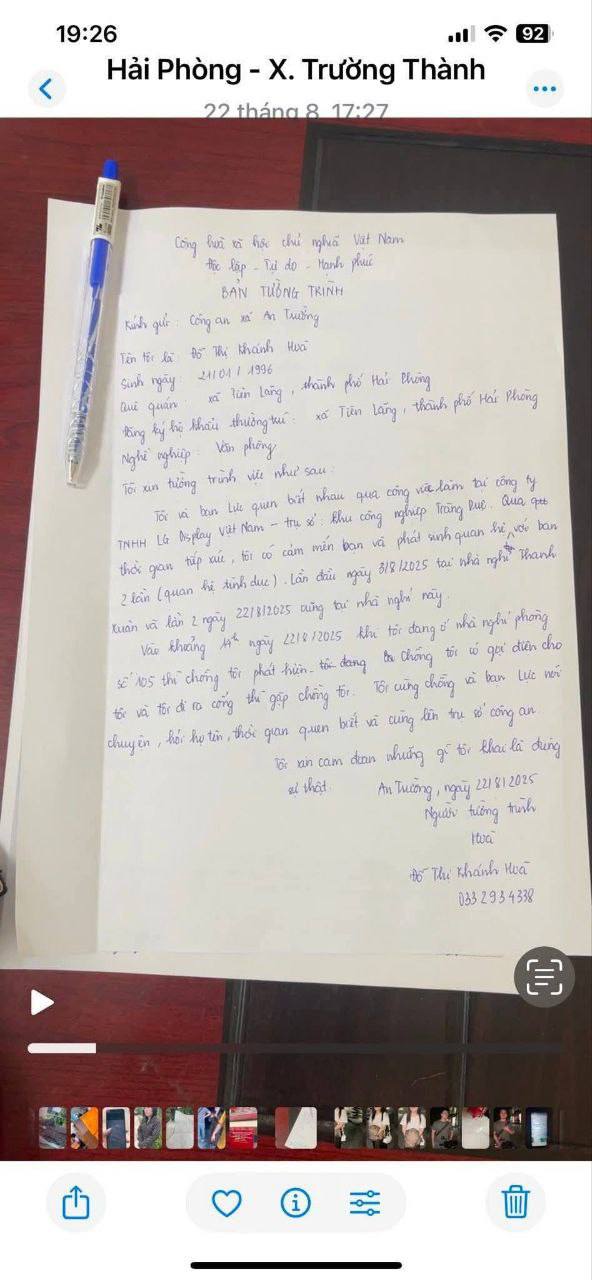 19:26
92
Hải Phòng - X. Trường Thành
22 tháng 8, 17:27
Cộng hoà xã hội chủ nghĩa Việt Nam
Độc lập - Tự do - Hạnh phúc
BẢN TƯỜNG TRÌNH
Kính gửi: Công an xã An Trường
Tên tôi là: Đỗ Thị Khánh Hoà
Sinh ngày: 21/01/1996
Quê quán: xã Tiên Lãng, thành phố Hải Phòng
Đăng ký hộ khẩu thường trú: xã Tiên Lãng, thành phố Hải Phòng
Nghề nghiệp: Văn phòng
Tôi xin tường trình việc như sau:
Tôi và bạn Lực quen biết nhau qua công việc làm tại công ty
TNHH LG Display Việt Nam - trụ sở: khu công nghiệp Tràng Duệ. Qua
thời gian tiếp xúc, tôi có cảm mến bạn và phát sinh quan hệ với bạn
2 lần (quan hệ tình dục). Lần đầu ngày 3/8/2025 tại nhà nghỉ Thanh
Xuân và lần 2 ngày 22/8/2025 cũng tại nhà nghỉ này.
Vào khoảng 14h ngày 22/8/2025 khi tôi đang ở nhà nghỉ phòng
số 105 thì chồng tôi phát hiện. Chồng tôi có gọi điện cho
tôi và tôi đi ra cổng thì gặp chồng tôi. Tôi cùng chồng và bạn Lực nói
chuyện, hỏi họ tên, thời gian quen biết và cùng lên trụ sở công an
Tôi xin cam đoan những gì tôi khai là đúng
sự thật.
An Trường, ngày 22/8/2025
Người tường trình
Hoà
Đỗ Thị Khánh Hoà
0332934338